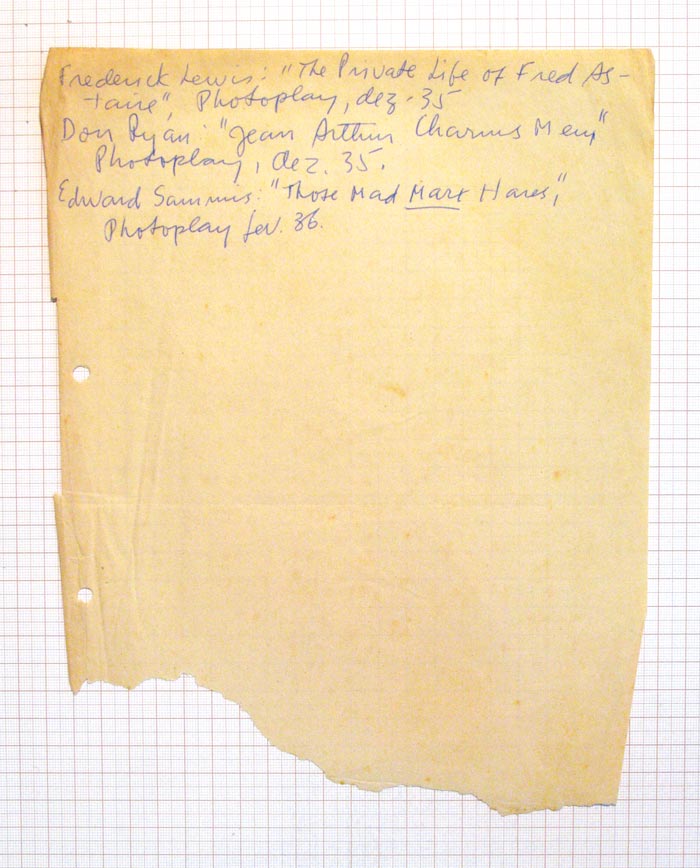 Frederick Lewis: "The Private Life of Fred As-
-taire", Photoplay, dez. 35
Don Ryan: "Jean Arthur Charms Men,"
Photoplay, dez. 35.
Edward Sammis: "Those Mad Marx Hares",
Photoplay fev. 36.